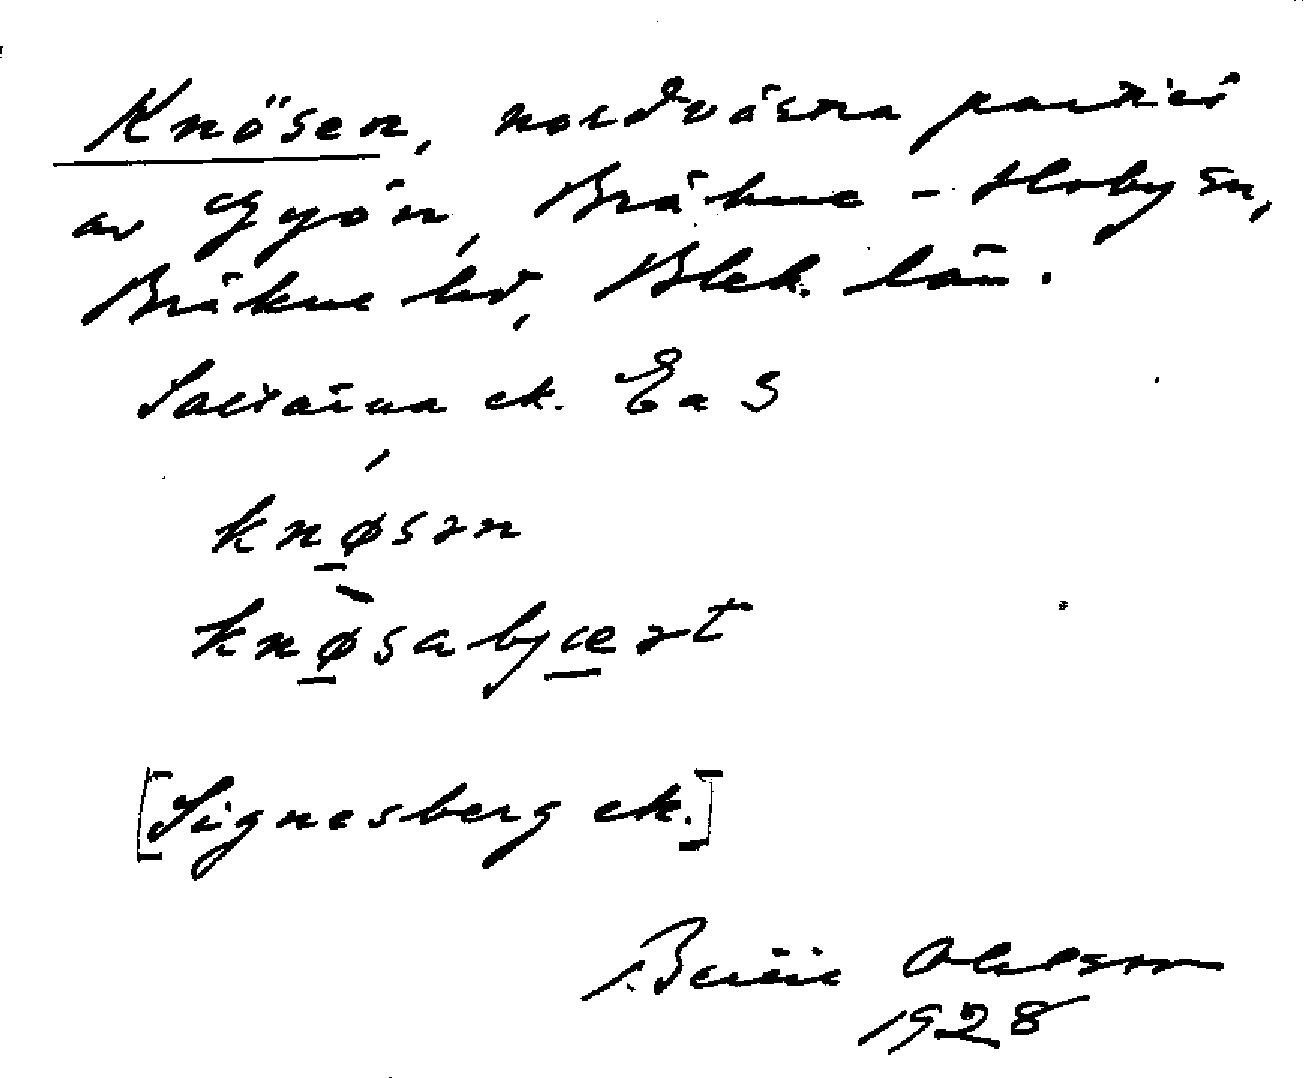 Knösen, nordvästra partiet
av Gyön, Bräkne-Hoby sn,
Bräkne hd, Blek. län.
Saltärna ek. Ea S
knǿ̱sən
knø̱̀sabjæ̱rət
[Signesberg ek.]
Bertil Ohlsson
1928